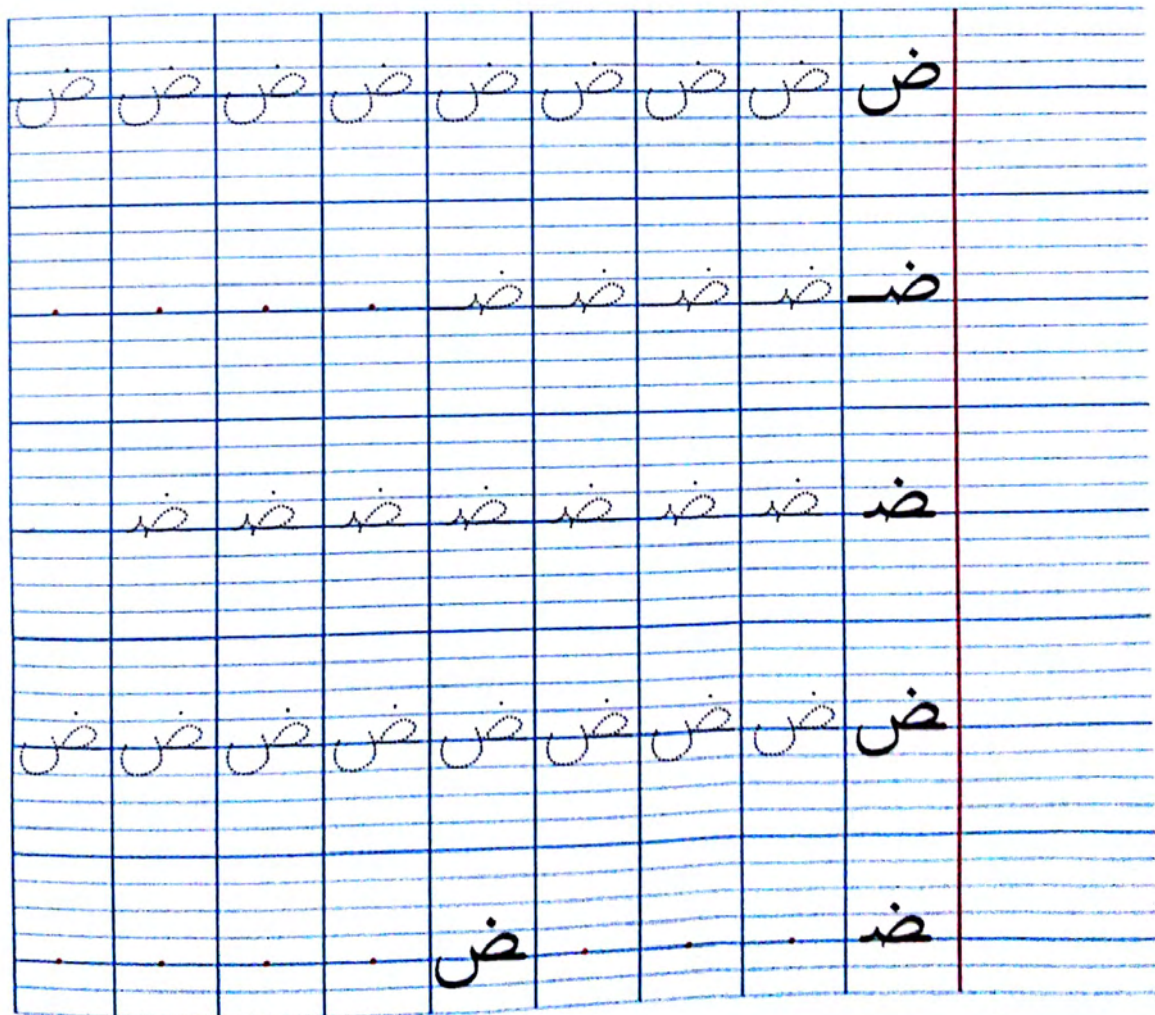 ض ض ض ض ض ض ض ض ض
ضـ ضـ ضـ ضـ ضـ
ـضـ ـضـ ـضـ ـضـ ـضـ ـضـ ـضـ ـضـ
ـض ـض ـض ـض ـض ـض ـض ـض ـض
ـضـ . . . ـض . . . .